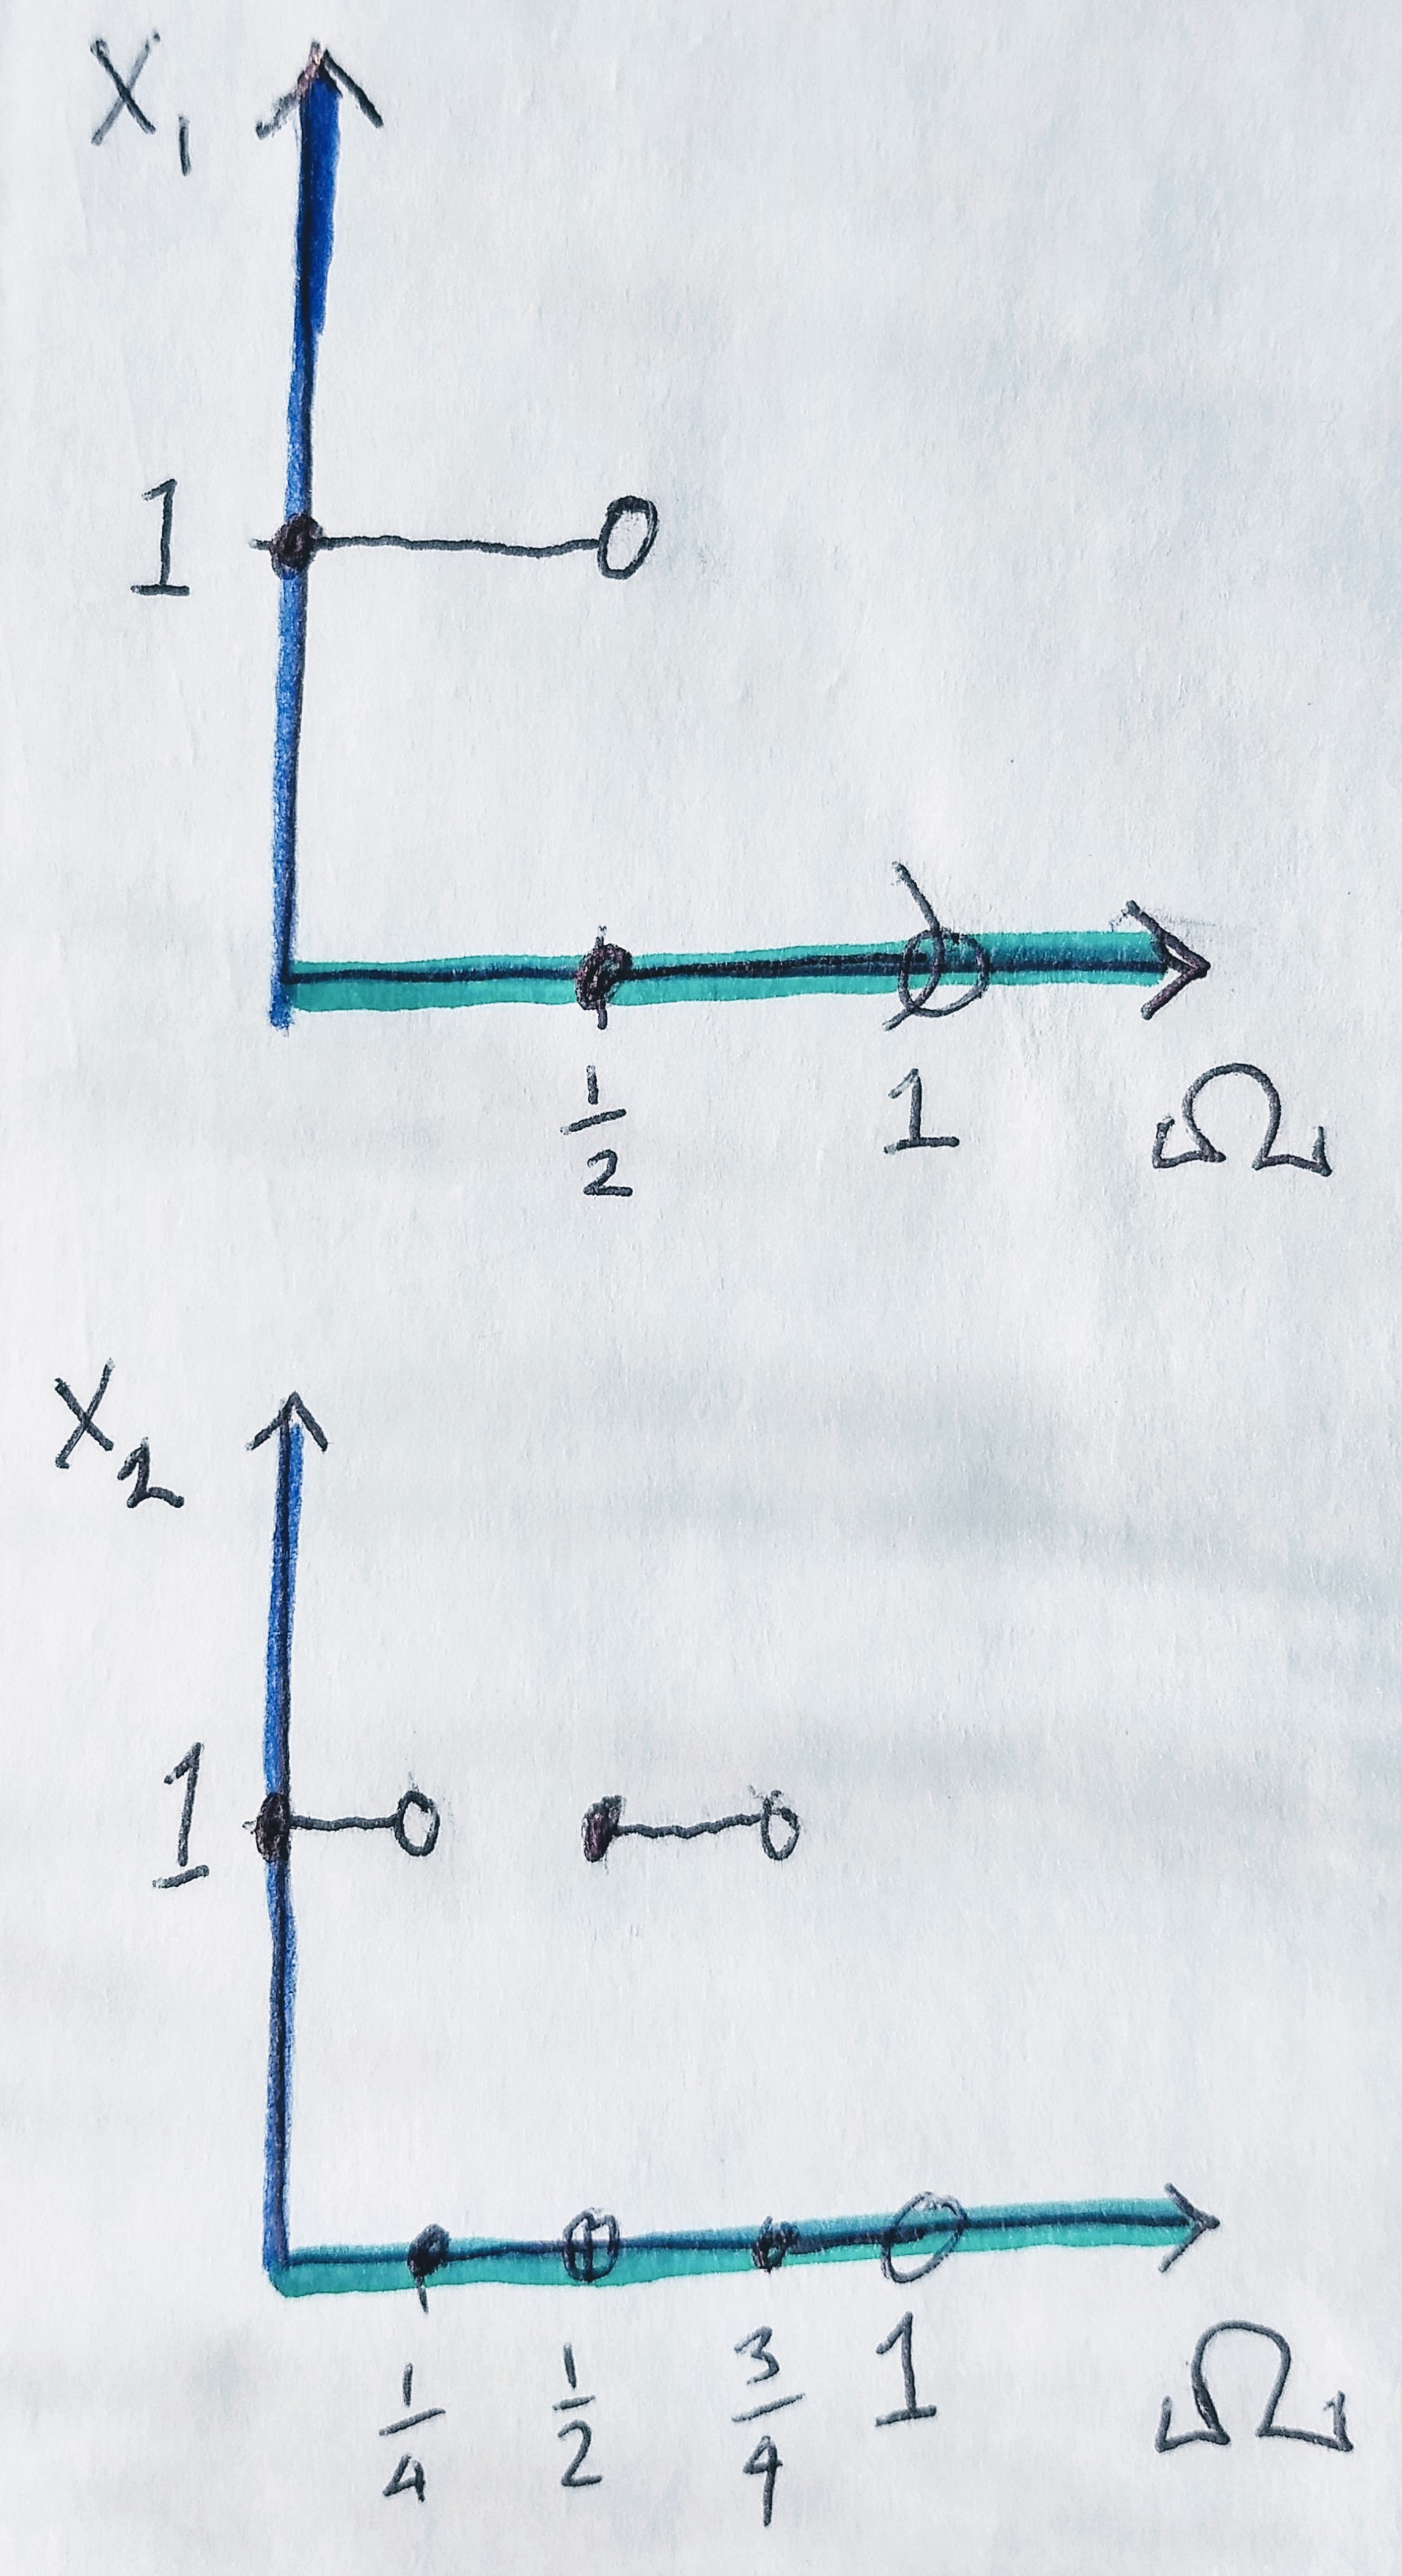 X₁
1
1/2 1 Ω
X₂
1
1/4 1/2 3/4 1 Ω